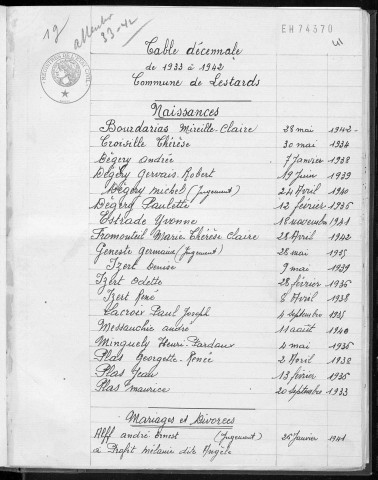 EH 74370
Table décennale
de 1933 à 1942
Commune de Lestards
Naissances
Bourdarias Mireille-Claire 28 mai 1942
Croisille Thérèse 30 mai 1934
Dégery andrée 7 Janvier 1938
Dégery Gervais Robert 19 Juin 1939
Dégery michel (Jugement) 24 Avril 1940
Dégery Paulette 12 février 1936
Estrade Yvonne 18 novembre 1941
Fromonteil Marie Thérèse Claire 28 Avril 1942
Geneste Germaine (Jugement) 26 mai 1935
Izert Denise 9 mai 1939
Izert Odette 28 février 1936
Izert René 8 Avril 1938
Lacroix Paul Joseph 4 septembre 1935
Messauchie andré 11 août 1940
Minguely Henri Dardaux 4 mai 1936
Plas Georgette-Renée 2 Avril 1938
Plas Jean 13 février 1936
Plas maurice 20 septembre 1933
Mariages et Divorces
Alff andré Ernest (Jugement) 25 Janvier 1941
à Profit mélanie dite Angèle